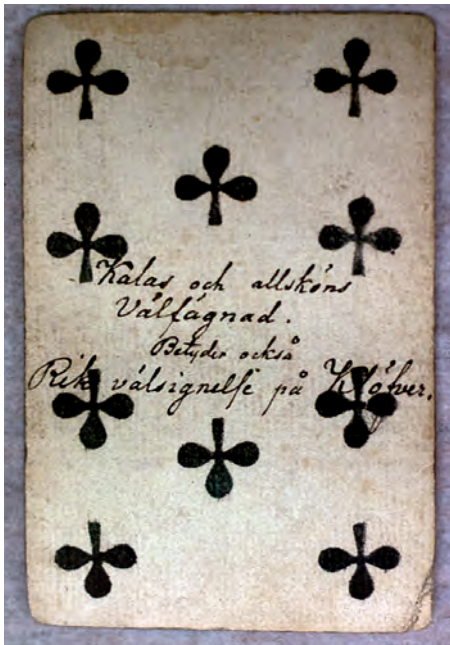 Kalas och allsköns
Välfägnad.
Betyder också
Rik välsignelse på Klöfver.